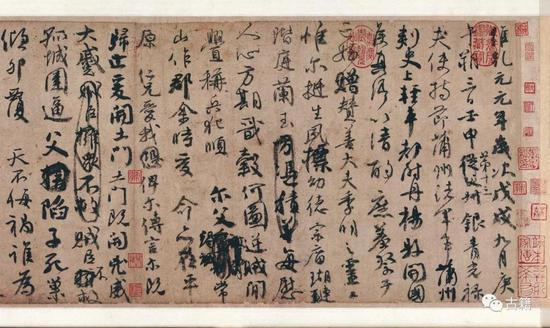 維乾元元年歲次戊戌九月庚
午朔三日壬申第十三從父叔銀青光祿
夫使持節蒲州諸軍事蒲州
刺史上輕車都尉丹楊縣開國
侯真卿以清酌庶羞祭于
亡姪贈贊善大夫季明之靈曰
惟爾挺生夙標幼德宗廟瑚璉
階庭蘭玉方憑積善每慰
人心方期戩穀何圖逆賊閒
釁稱兵犯順爾父竭誠常
山作郡余時受命亦在平
原仁兄愛我俾爾傳言爾既
歸止爰開土門土門既開兇威
大蹙賊臣擁眾不救賊臣不救
孤城圍逼父陷子死巢
傾卵覆天不悔禍誰為
古籍